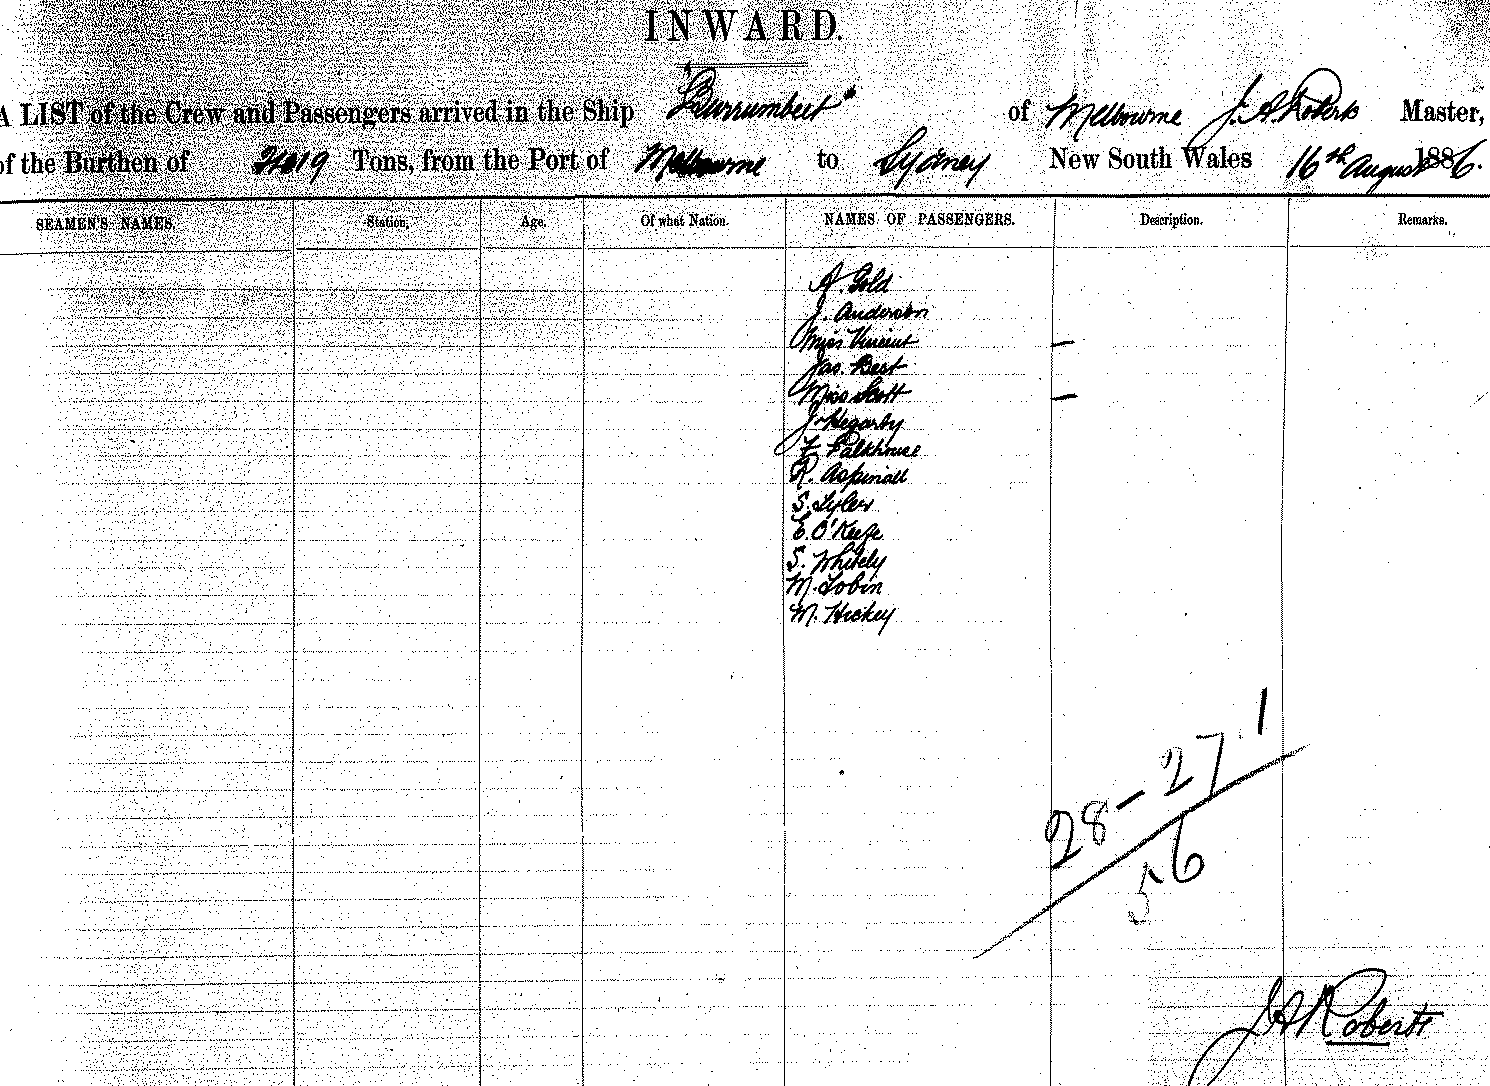 INWARD.
A LIST of the Crew and Passengers arrived in the Ship "Burrumbeet" of Melbourne J. A. Roberts Master,
of the Burthen of Tons, from the Port of Melbourne to Sydney New South Wales 16th August 1886.
SEAMEN'S NAMES. Station. Age. Of what Nation. NAMES OF PASSENGERS. Description. Remarks.
A. Gold
J. Anderson
Miss Vincent —
Jas. Best
Miss Scott —
J. Hegarby
F. Palkhouse
R. Aspinall
S. Tyler
E. O'Keefe
S. Whitely
M. Tobin
M. Hickey
28 - 27 . 1
56
J A Roberts